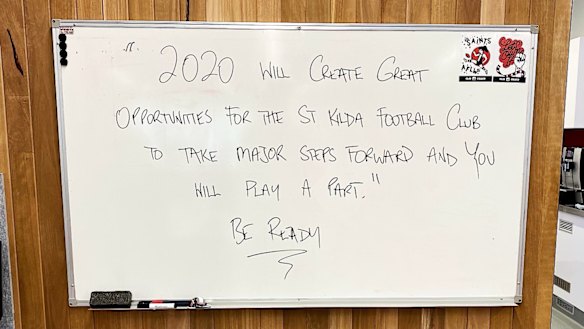 "2020 WILL CREATE GREAT
OPPORTUNITIES FOR THE ST KILDA FOOTBALL CLUB
TO TAKE MAJOR STEPS FORWARD AND YOU
WILL PLAY A PART."
BE READY
SAINTS
AFLW